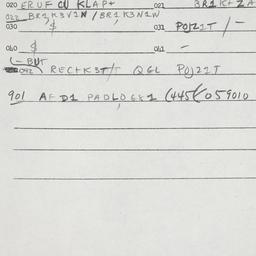 020 ERUF CU KLAP+ 021 BR1K+ZA
022 BR1K3V1N / BR1K3N1W
030 $ 031 P0J21T / -
060 $ 061 -
(-BUT
042 RECTK3T/T QGL P0J21T
901 AFD1 PADLO681 (445 059010